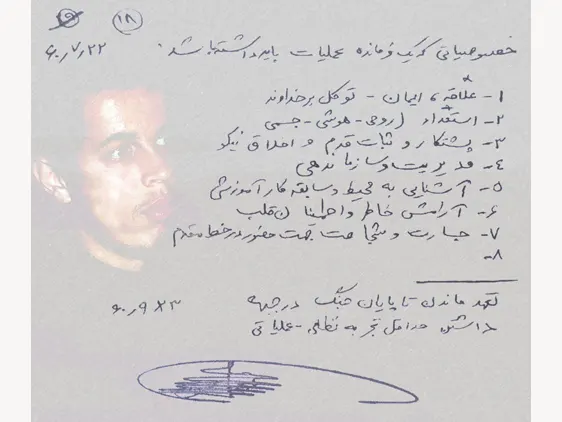 ۱۸
۶۰٫۷٫۲۲
خصوصیاتی که یک فرمانده عملیات باید داشته باشد:
۱- علاقه، ایمان - توکل بر خداوند
۲- استعداد (روحی - هوشی - جسمی
۳- پشتکار و ثبات قدم و اخلاق نیکو
۴- مدیریت و سازماندهی
۵- آشنایی به محیط و سابقه کار آموزشی
۶- آرامش خاطر و اطمینان قلب
۷- جسارت و شجاعت جهت حضور در خط مقدم
۸-
تعهد ماندن تا پایان جنگ در جبهه
داشتن حداقل تجربه نظامی - عملیاتی
۶۰٫۹٫۲۳